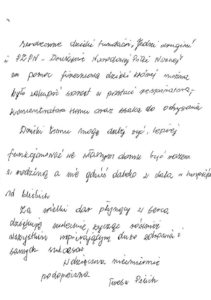 "
serdecznie dziękuję Fundacji „Jedni drugim”
i PZPN – Związkowi Narodowej Piłki Nożnej
za pomoc finansową dzięki której można
było zakupić sprzęt w postaci respiratora,
koncentratora tlenu oraz ssaka do odsysania.
Dzięki temu mogę dalej żyć, lepiej
funkcjonować we własnym domu być razem
z rodziną a nie gdzieś daleko z dala
od bliskich.
Za wielki dar płynący z serca
dziękuję serdecznie, życząc
wszystkim wspierającym dużo zdrowia i
samych sukcesów
Wdzięczna niezmiernie
podopieczna
Teresa